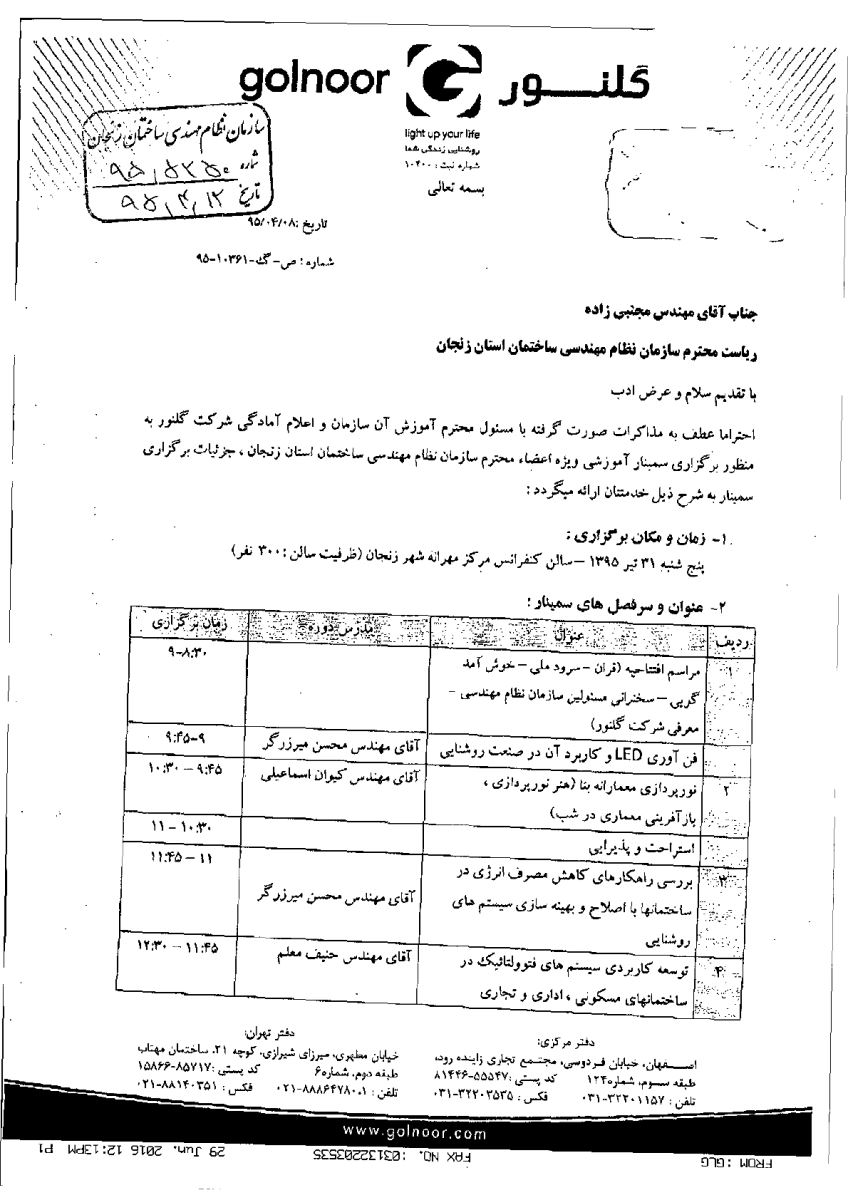 golnoor گلنور
light up your life
روشنایی زندگی شما
شماره ثبت : ۱۰۴۰۰
بسمه تعالی
سازمان نظام مهندسی ساختمان زنجان
شماره ۹۵,۵۲۵۰
تاریخ ۹۵,۴,۱۲
تاریخ :۹۵/۰۴/۰۸
شماره : ص-گ-۱۰۳۶۱-۹۵
جناب آقای مهندس مجتبی زاده
ریاست محترم سازمان نظام مهندسی ساختمان استان زنجان
با تقدیم سلام و عرض ادب
احتراما عطف به مذاکرات صورت گرفته با مسئول محترم آموزش آن سازمان و اعلام آمادگی شرکت گلنور به
منظور برگزاری سمینار آموزشی ویژه اعضاء محترم سازمان نظام مهندسی ساختمان استان زنجان ، جزئیات برگزاری
سمینار به شرح ذیل خدمتتان ارائه میگردد :
۱- زمان و مکان برگزاری :
پنج شنبه ۳۱ تیر ۱۳۹۵ –سالن کنفرانس مرکز مهرانه شهر زنجان (ظرفیت سالن : ۳۰۰ نفر)
۲- عنوان و سرفصل های سمینار :
ردیف عنوان مدرس دوره زمان برگزاری
۱ مراسم افتتاحیه (قران – سرود ملی – خوش آمد ۹-۸:۳۰
گویی – سخنرانی مسئولین سازمان نظام مهندسی -
معرفی شرکت گلنور)
فن آوری LED و کاربرد آن در صنعت روشنایی آقای مهندس محسن میرزرگر ۹:۴۵-۹
۲ نورپردازی معمارانه بنا (هنر نورپردازی ، آقای مهندس کیوان اسماعیلی ۱۰:۳۰ – ۹:۴۵
بازآفرینی معماری در شب)
استراحت و پذیرایی ۱۱ – ۱۰:۳۰
۳ بررسی راهکارهای کاهش مصرف انرژی در ۱۱:۴۵ – ۱۱
ساختمانها با اصلاح و بهینه سازی سیستم های آقای مهندس محسن میرزرگر
روشنایی
۴ توسعه کاربردی سیستم های فتوولتائیک در آقای مهندس حنیف معلم ۱۲:۳۰ – ۱۱:۴۵
ساختمانهای مسکونی ، اداری و تجاری
دفتر مرکزی:
اصفهان، خیابان فردوسی، مجتمع تجاری زاینده رود،
طبقه سوم، شماره ۱۲۴ کد پستی :۵۵۵۴۷-۸۱۴۴۶
تلفن : ۳۲۲۰۱۱۵۷-۰۳۱ فکس : ۳۲۲۰۳۵۳۵-۰۳۱
دفتر تهران:
خیابان مطهری، میرزای شیرازی، کوچه ۲۱، ساختمان مهتاب
طبقه دوم، شماره۶ کد پستی :۸۵۷۱۷-۱۵۸۶۶
تلفن : ۸۸۸۶۴۷۸۰۰۱-۰۲۱ فکس : ۸۸۱۴۰۳۵۱-۰۲۱
www.golnoor.com
FROM :GLG FAX NO. :03132203535 29 Jun. 2016 12:13PM P1